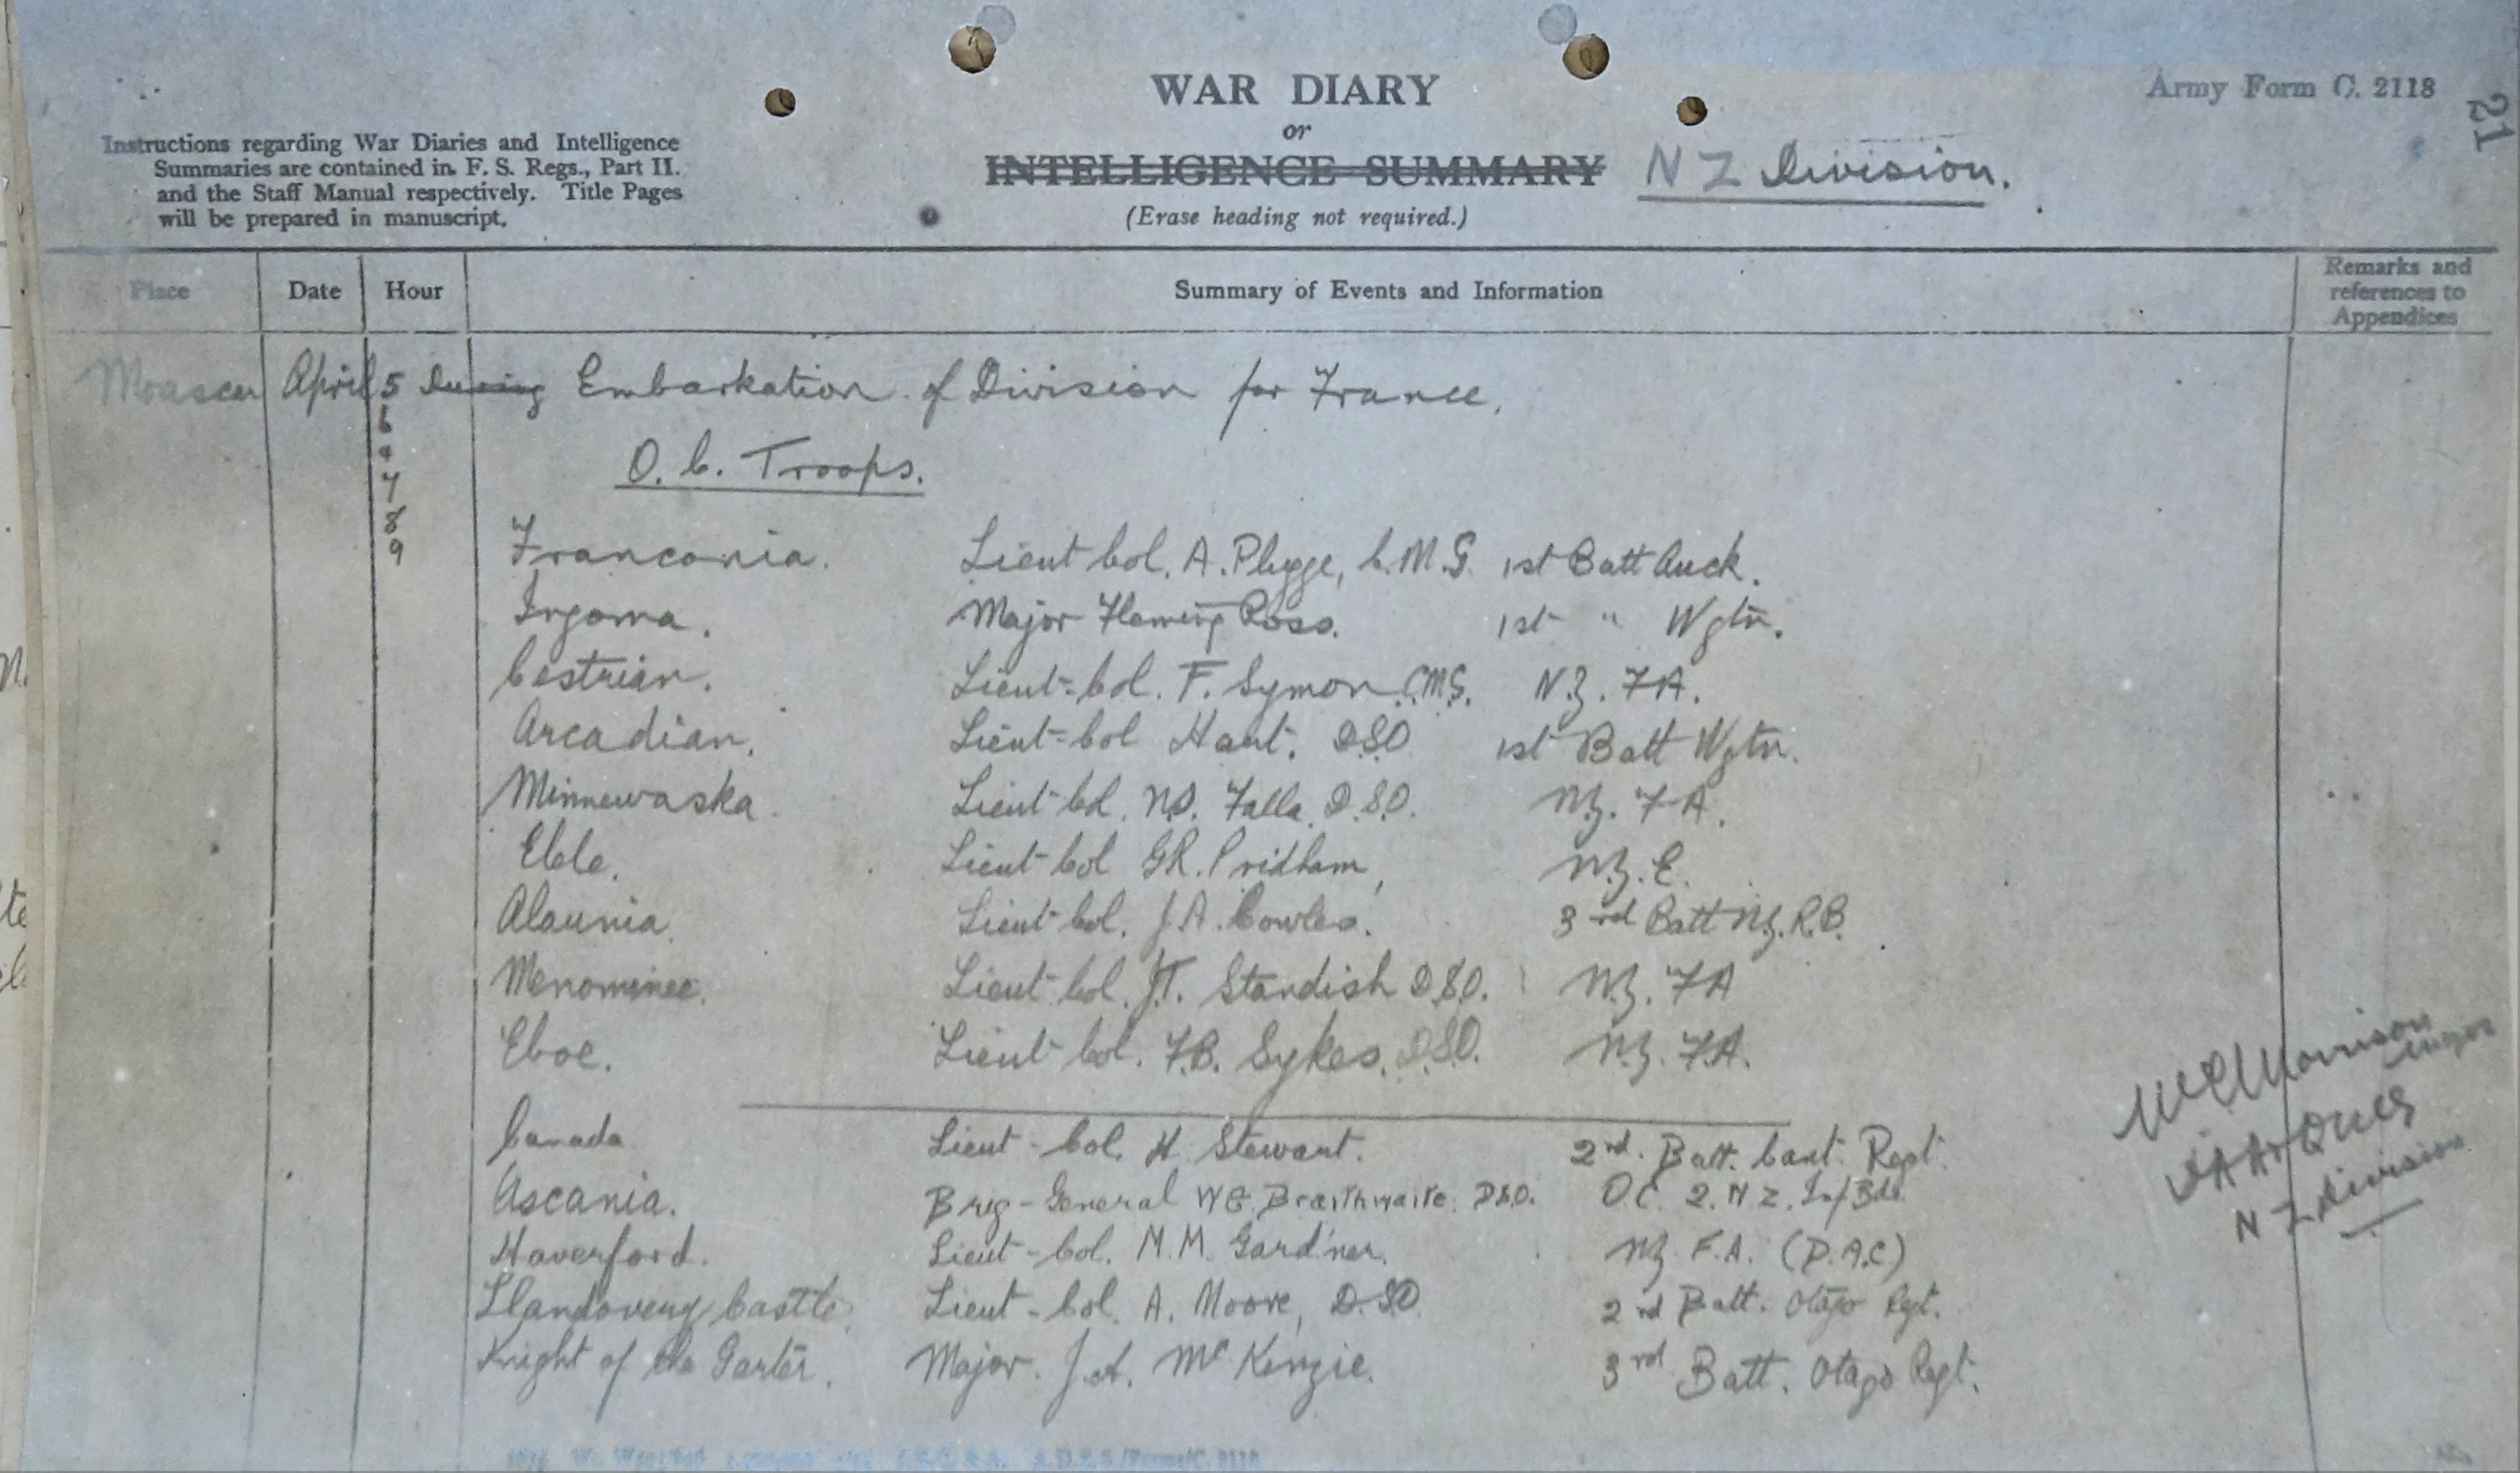 WAR DIARY
or
INTELLIGENCE SUMMARY
(Erase heading not required.)
N Z Division.
Army Form C. 2118
21
Instructions regarding War Diaries and Intelligence
Summaries are contained in F. S. Regs., Part II.
and the Staff Manual respectively. Title Pages
will be prepared in manuscript.
Place Date Hour Summary of Events and Information Remarks and
references to
Appendices
Moascar April 5 During Embarkation of Division for France.
6
7
8
9
O. C. Troops.
Franconia. Lieut Col. A. Plugge, C.M.G. 1st Batt Auck.
Ingoma. Major Fleming Ross. 1st " Wgtn.
Cestrian. Lieut-Col. F. Symon C.M.G. N.Z. FA.
Arcadian. Lieut-Col Hart. D.S.O. 1st Batt Wgtn.
Minnewaska. Lieut-Col. N.S. Falla. D.S.O. N.Z. FA.
Elele. Lieut-Col G.R. Pridham, N.Z. E.
Alaunia. Lieut-Col. J.A. Cowles. 3rd Batt N.Z. R.B.
Menominee. Lieut-Col. J.T. Standish D.S.O. N.Z. FA
Eboe. Lieut-Col. F.B. Sykes. D.S.O. N.Z. F.A.
Canada Lieut-Col. H. Stewart. 2nd. Batt. Cant. Regt.
Ascania. Brig-General W G Braithwaite. D.S.O. OC 2. N Z. Inf Bde.
Haverford. Lieut-Col. M.M. Gardner. NZ F.A. (D.A.C)
Llandovery Castle. Lieut-Col. A. Moore, D.S.O 2nd Batt. Otago Rgt.
Knight of the Garter. Major. J.A. McKenzie. 3rd Batt. Otago Regt.
Morrison
Major
DAA & QMG
N Z Division